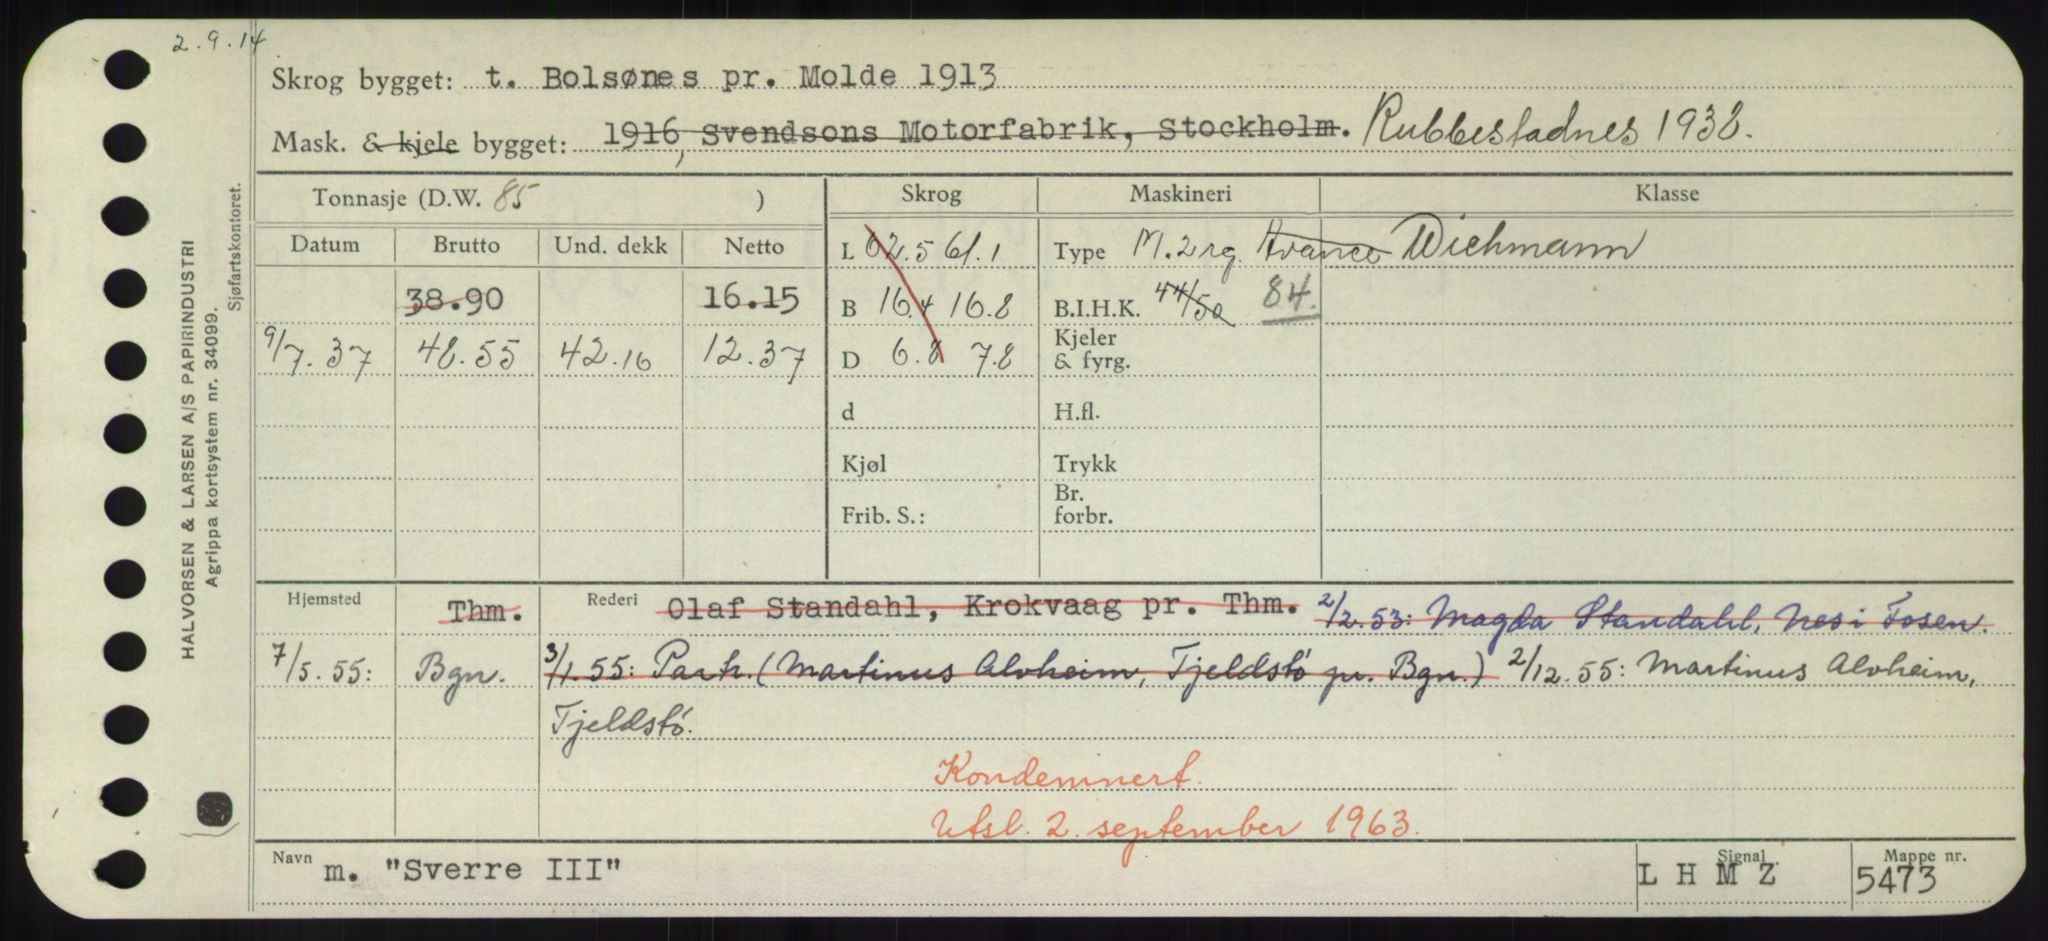 2.9.14
Skrog bygget: t. Bolsønes pr. Molde 1913
Mask. & kjele bygget: 1916, Svendsons Motorfabrik, Stockholm. Rubbestadnes 1938.
Tonnasje (D.W. 85 ) Skrog Maskineri Klasse
Datum Brutto Und. dekk Netto L 62.5 61.1 Type M. 2 rg. Avance Wichmann
38.90 16.15 B 16.4 16.8 B.I.H.K. 44/50 84.
9/7.37 48.55 42.16 12.37 D 6.8 7.8 Kjeler & fyrg.
d H.fl.
Kjøl Trykk
Frib. S.: Br. forbr.
Hjemsted Thm. Rederi Olaf Standahl, Krokvaag pr. Thm. 2/2.53: Magda Standahl, Nes i Fosen.
7/5.55: Bgn. 3/1.55: Partr. (Martinus Alvheim, Tjeldstö pr. Bgn.) 2/12.55: Martinus Alvheim,
Tjeldstö.
Kondemnert.
Utsl. 2. september 1963.
Navn m. "Sverre III" Signal L H M Z Mappe nr. 5473
HALVORSEN & LARSEN A/S PAPIRINDUSTRI
Agrippa kortsystem nr. 34099.
Sjøfartskontoret.